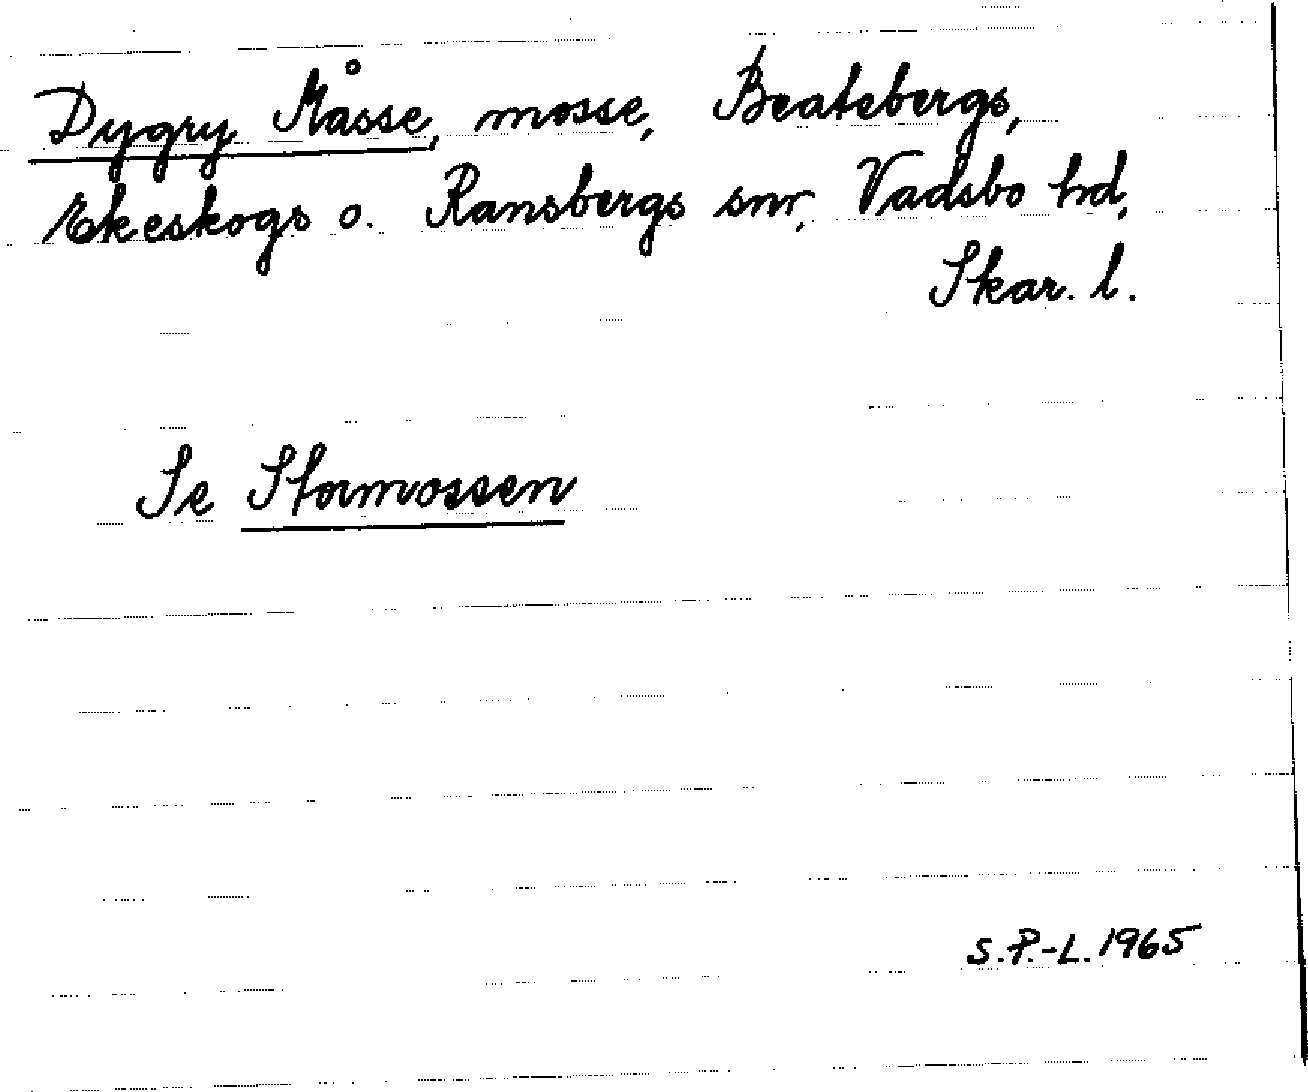 Dygry Måsse, mosse, Beatebergs,
Ekeskogs o. Ransbergs snr, Vadsbo hd,
Skar. l.
Se Stormossen
S.P.-L. 1965